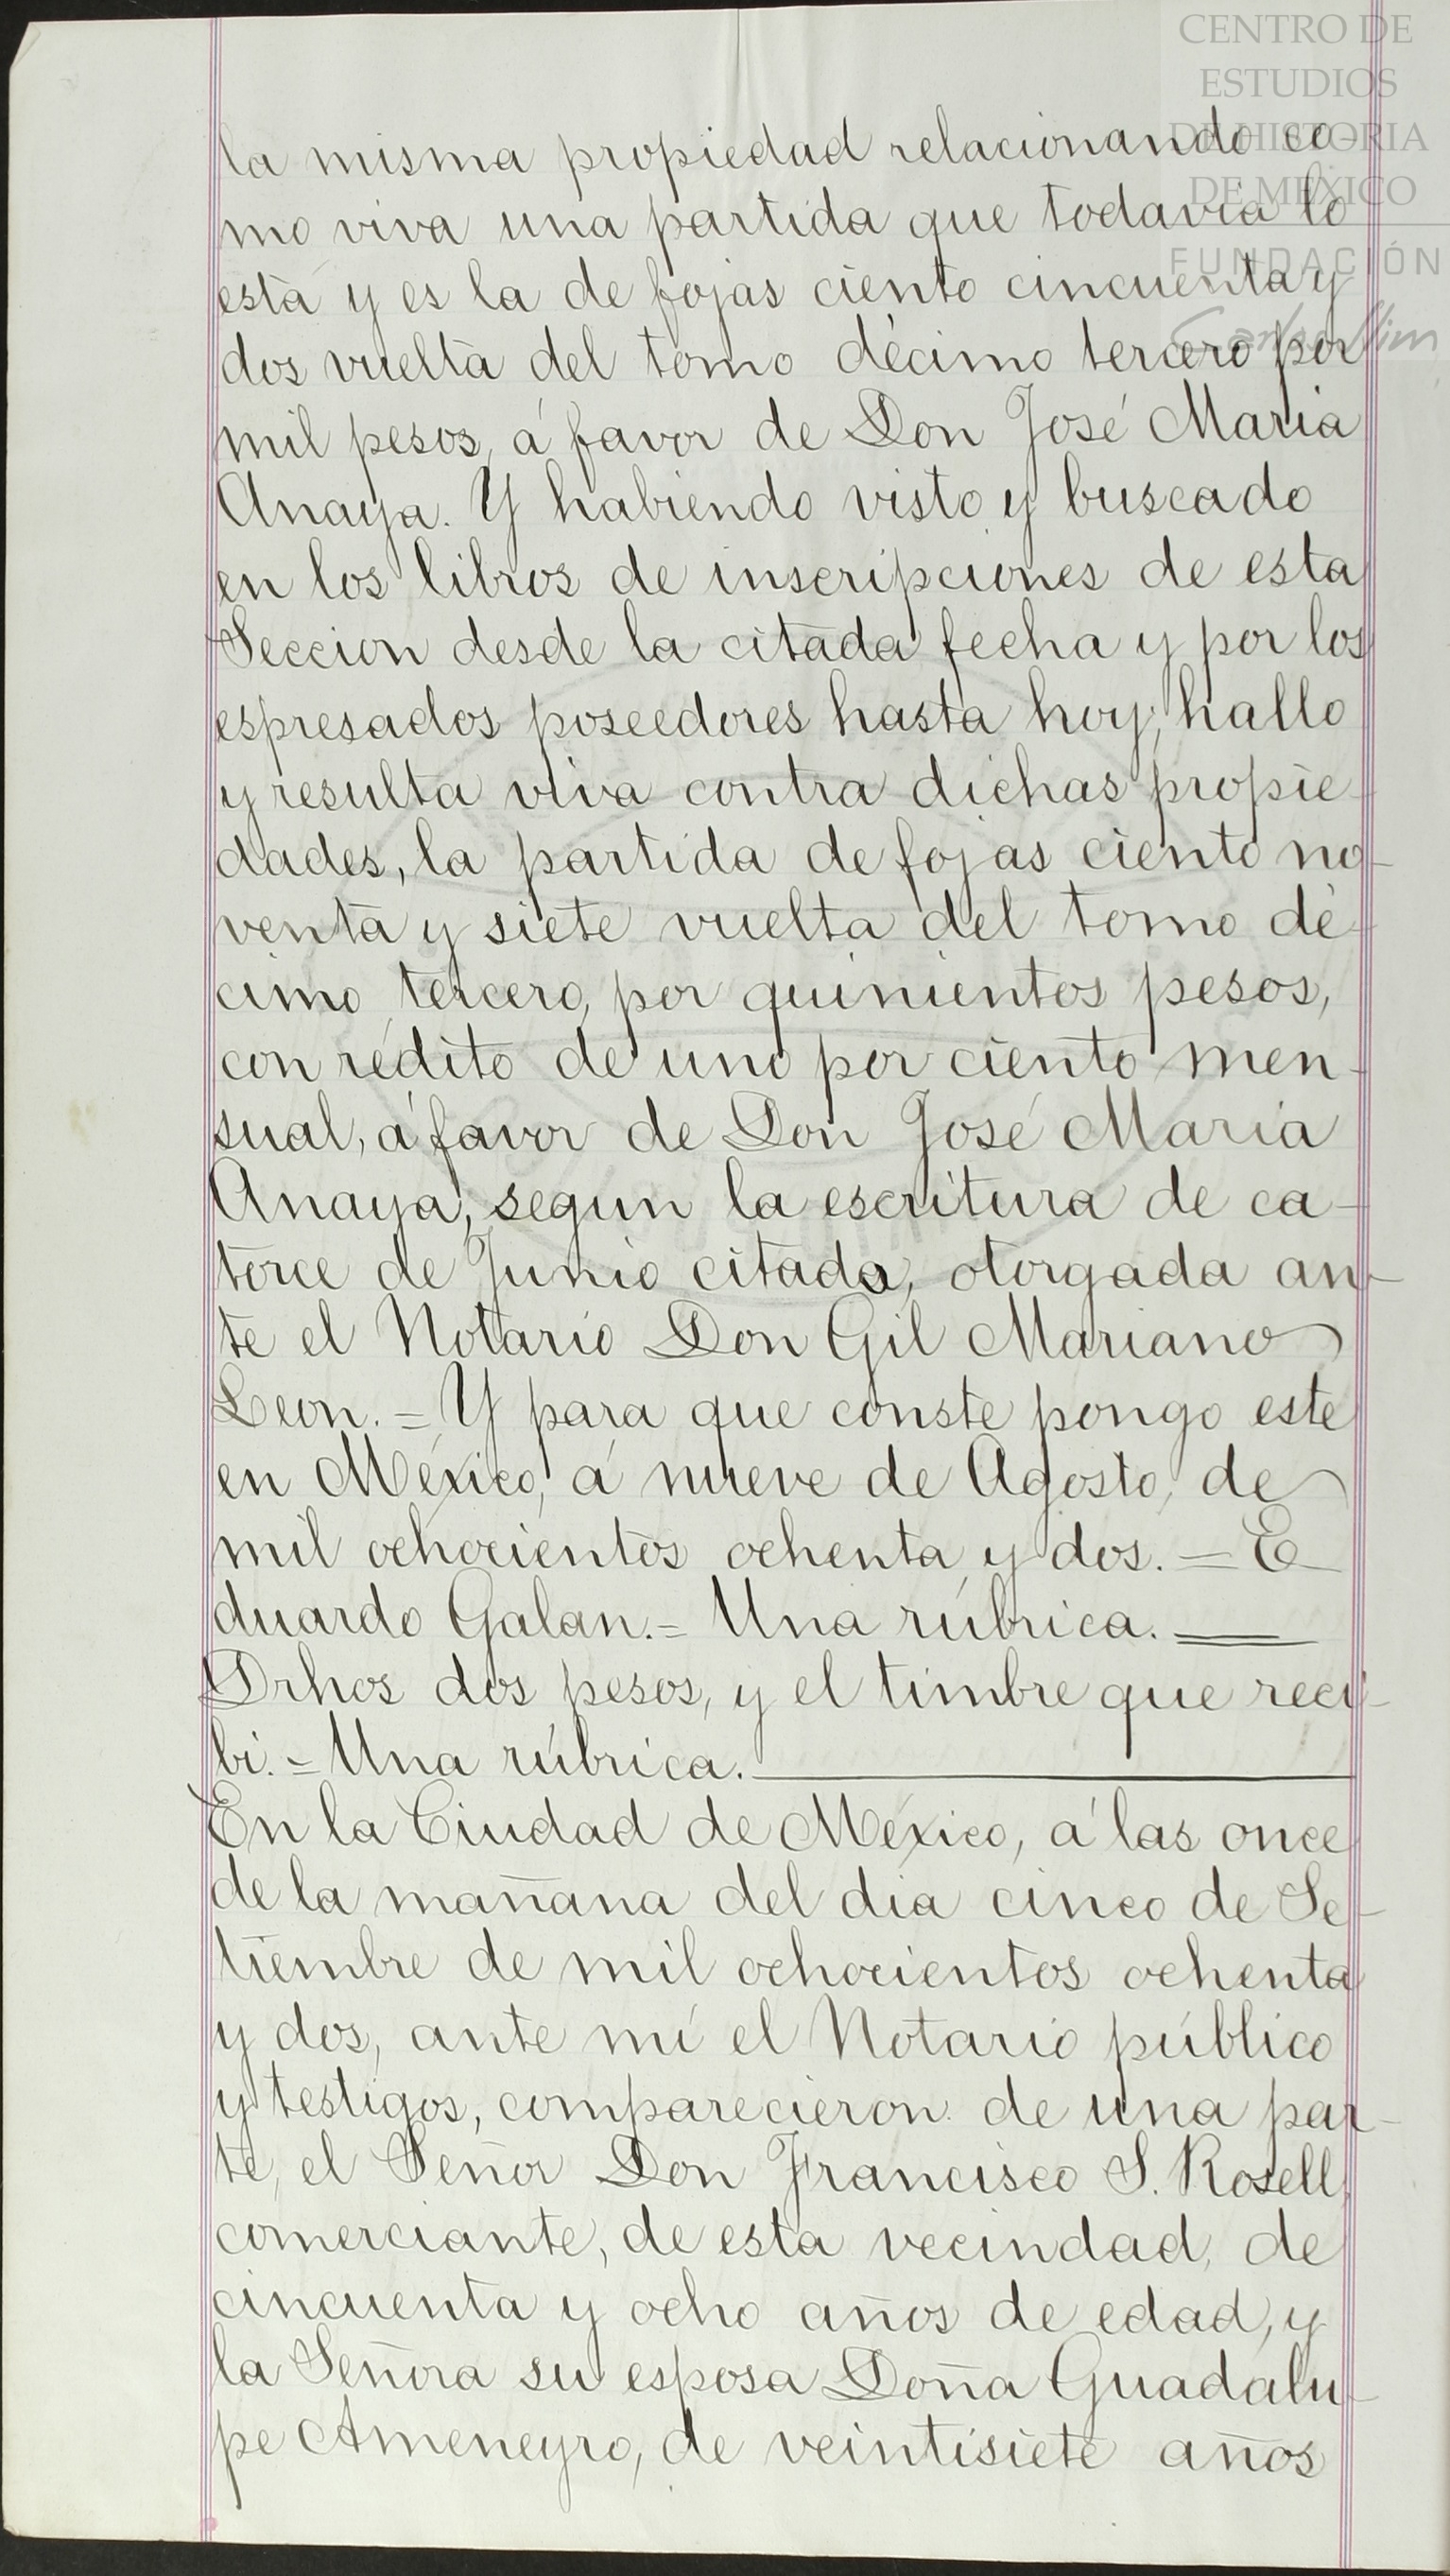 CENTRO DE
ESTUDIOS
DE HISTORIA
DE MEXICO
FUNDACIÓN
Carlos Slim
la misma propiedad relacionando co-
mo viva una partida que todavia lo
está y es la de fojas ciento cincuenta y
dos vuelta del tomo décimo tercero por
mil pesos, á favor de Don José Maria
Anaya. Y habiendo visto y buscado
en los libros de inscripciones de esta
Seccion desde la citada fecha y por los
espresados poseedores hasta hoy, hallo
y resulta viva contra dichas propie-
dades, la partida de fojas ciento no-
venta y siete vuelta del tomo dé-
cimo tercero, por quinientos pesos,
con rédito de uno por ciento men-
sual, á favor de Don José Maria
Anaya, segun la escritura de ca-
torce de Junio citada, otorgada an-
te el Notario Don Gil Mariano
Leon. = Y para que conste pongo este
en México, á nueve de Agosto, de
mil ochocientos ochenta y dos. = E
duardo Galan. = Una rúbrica. =
Drhos dos pesos, y el timbre que reci-
bi. = Una rúbrica.
En la Ciudad de México, á las once
de la mañana del dia cinco de Se-
tiembre de mil ochocientos ochenta
y dos, ante mí el Notario público
y testigos, comparecieron de una par-
te, el Señor Don Francisco S. Rosell,
comerciante, de esta vecindad, de
cincuenta y ocho años de edad, y
la Señora su esposa Doña Guadalu-
pe Ameneyro, de veintisiete años